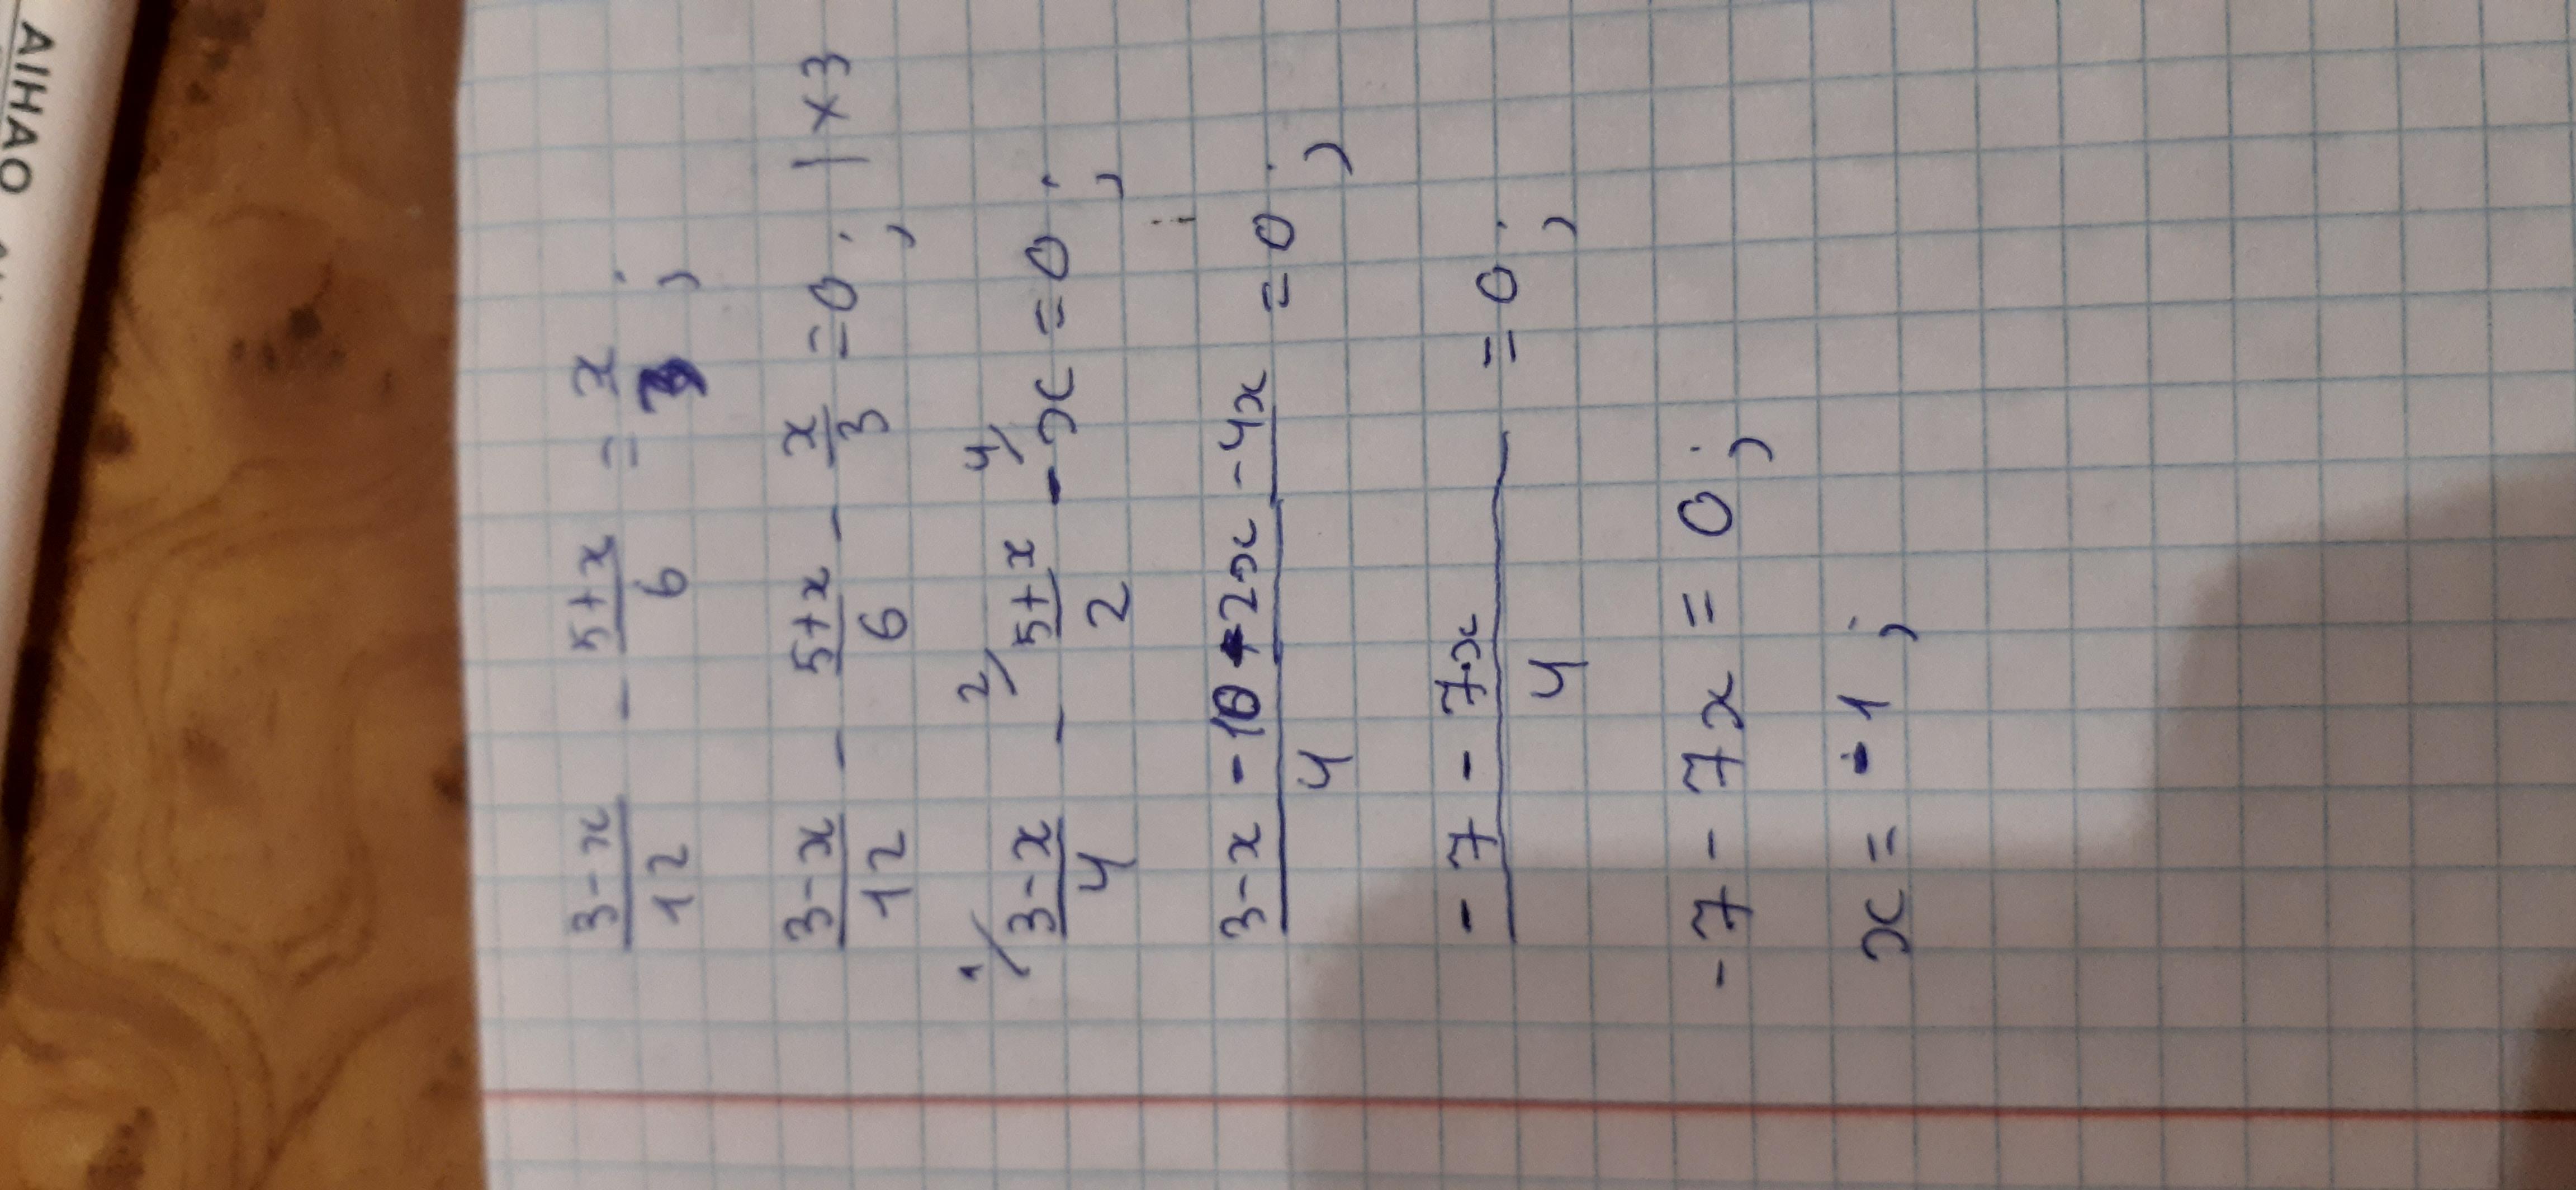 AIHAO
(3-x)/12 - (5+x)/6 = x/3;
(3-x)/12 - (5+x)/6 - x/3 = 0; | ×3
1/ (3-x)/4 - 2/ (5+x)/2 - 4/ x = 0;
(3-x -10 -2x -4x)/4 = 0;
(-7 - 7x)/4 = 0;
-7 - 7x = 0;
x = -1;